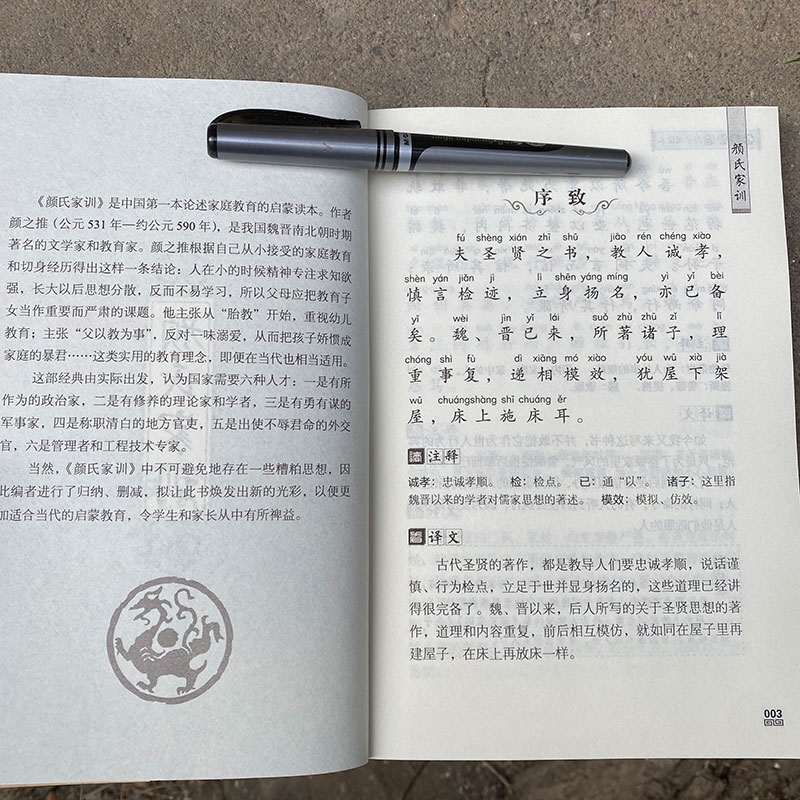 《颜氏家训》是中国第一本论述家庭教育的启蒙读本。作者
颜之推（公元531年—约公元590年），是我国魏晋南北朝时期
著名的文学家和教育家。颜之推根据自己从小接受的家庭教育
和切身经历得出这样一条结论：人在小的时候精神专注求知欲
强，长大以后思想分散，反而不易学习，所以父母应把教育子
女当作重要而严肃的课题。他主张从“胎教”开始，重视幼儿
教育；主张“父以教为事”，反对一味溺爱，从而把孩子娇惯成
家庭的暴君……这类实用的教育理念，即便在当代也相当适用。
这部经典由实际出发，认为国家需要六种人才：一是有所
作为的政治家，二是有修养的理论家和学者，三是有勇有谋的
军事家，四是称职清白的地方官吏，五是出使不辱君命的外交
官，六是管理者和工程技术专家。
当然，《颜氏家训》中不可避免地存在一些糟粕思想，因
此编者进行了归纳、删减，拟让此书焕发出新的光彩，以便更
加适合当代的启蒙教育，令学生和家长从中有所裨益。
颜氏家训
序致
fú shèng xián zhī shū jiāo rén chéng xiào
夫圣贤之书，教人诚孝，
shèn yán jiǎn jì lì shēn yáng míng yì yǐ bèi
慎言检迹，立身扬名，亦已备
yǐ wèi jìn yǐ lái suǒ zhù zhū zǐ lǐ
矣。魏、晋已来，所著诸子，理
chóng shì fù dì xiāng mó xiào yóu wū xià jià
重事复，递相模效，犹屋下架
wū chuáng shàng shī chuáng ěr
屋，床上施床耳。
注释
诚孝：忠诚孝顺。 检：检点。 已：通“以”。 诸子：这里指
魏晋以来的学者对儒家思想的著述。 模效：模拟、仿效。
译文
古代圣贤的著作，都是教导人们要忠诚孝顺，说话谨
慎、行为检点，立足于世并显身扬名的，这些道理已经讲
得很完备了。魏、晋以来，后人所写的关于圣贤思想的著
作，道理和内容重复，前后相互模仿，就如同在屋子里再
建屋子，在床上再放床一样。
003